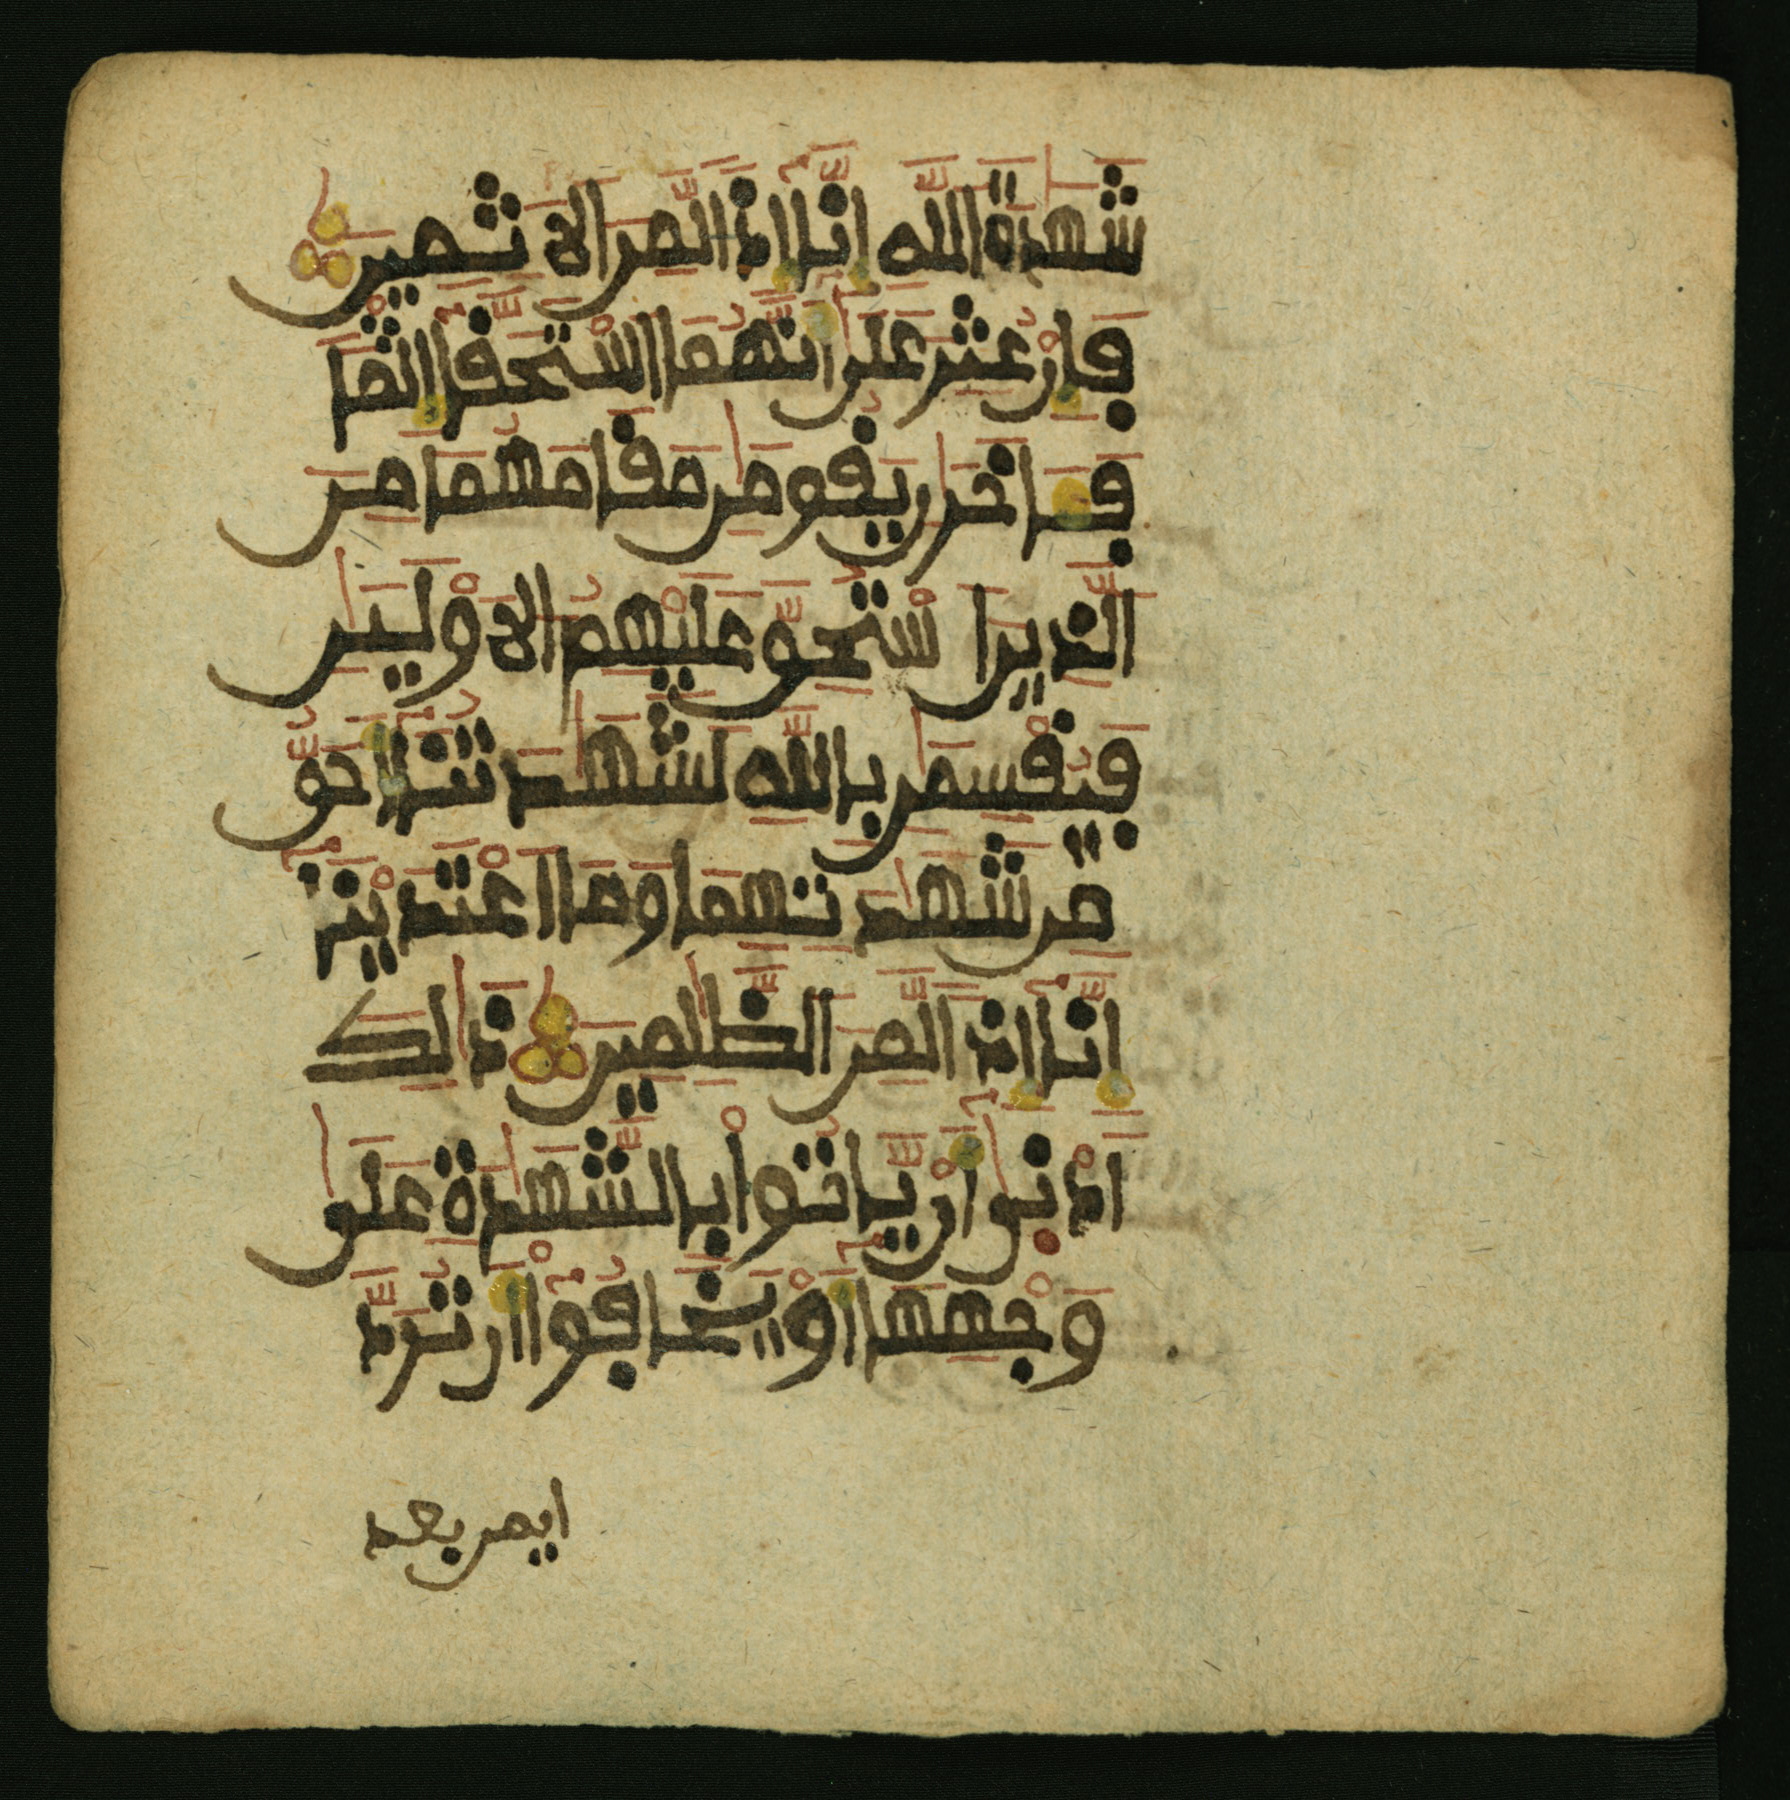 شَهَٰدَةَ اللَّهِ إِنَّا إِذًا لَّمِنَ الَاثِمِينَ
فَإِنْ عُثِرَ عَلَىٰ أَنَّهُمَا اسْتَحَقَّا إِثْمًا
فَـَٔاخَرَٰنِ يَقُومَٰنِ مَقَامَهُمَا مِنَ
الَّذِينَ اسْتُحِقَّ عَلَيْهِمُ الَاوْلَيَٰنِ
فَيُقْسِمَٰنِ بِاللَّهِ لَشَهَٰدَتُنَا أَحَقُّ
مِن شَهَٰدَتِهِمَا وَمَا اعْتَدَيْنَا
إِنَّا إِذًا لَّمِنَ الظَّٰلِمِينَ ذَٰلِكَ
أَدْنَىٰ أَنْ يَّاتُوا بِالشَّهَٰدَةِ عَلَىٰ
وَجْهِهَا أَوْ يَخَافُوا أَن تُرَدَّ
ايمن بعد